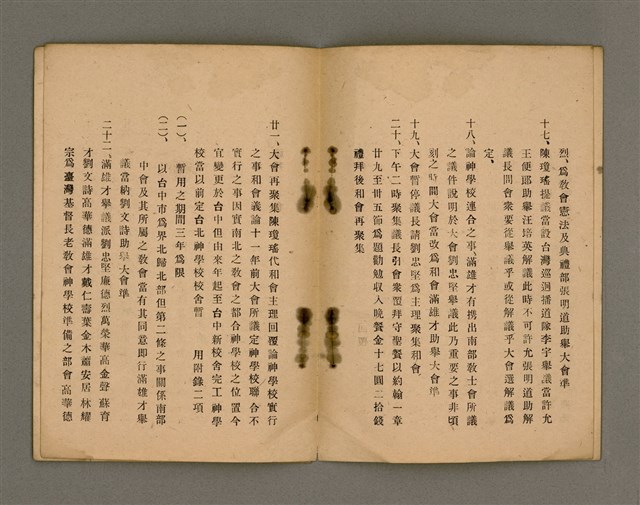 烈、爲敎會憲法及典禮部張明道助舉大會準
十七、陳瓊瑤提議當設台灣巡迴播道隊李宇舉議當許允
王便郎助舉汪培英解議此時不可許允張明道助解
議長問會衆要從舉議乎或從解議乎大會選解議爲
定、
十八、論神學校連合之事、滿雄才有携出南部敎士會所議
之議件說明於大會劉忠堅舉議此乃重要之事非頃
刻之時間大會當改爲和會滿雄才助舉大會準
十九、大會暫停議長請劉忠堅爲主理聚集和會、
二十、下午二時聚集議長引會衆罷拜守聖餐以約翰一章
廿九至卅五節爲題勸勉收入晚餐金十七圓二拾錢
禮拜後和會再聚集
廿一、大會再聚集陳瓊瑤代和會主理回覆論神學校實行
之事和會議論十一年前大會所議定神學校聯合不
實行之事因實南北之敎會之都合神學校之位置今
宜變更於台中但由來年起至台中新校舍完工神學
校當以前定台北神學校校舍暫　用附錄二項
(一)、暫用之期間三年爲限
(二)、以台中市爲界北歸北部但第二條之事關係南部
中會及其所屬之敎會當有其同意即行滿雄才舉
議當納劉文詩助舉大會準
二十二、滿雄才舉議派劉忠堅廉德烈萬榮華高金聲蘇育
才劉文詩高華德滿雄才戴仁壽葉金木蕭安居林燿
宗爲臺灣基督長老敎會神學校準備之部會高華德